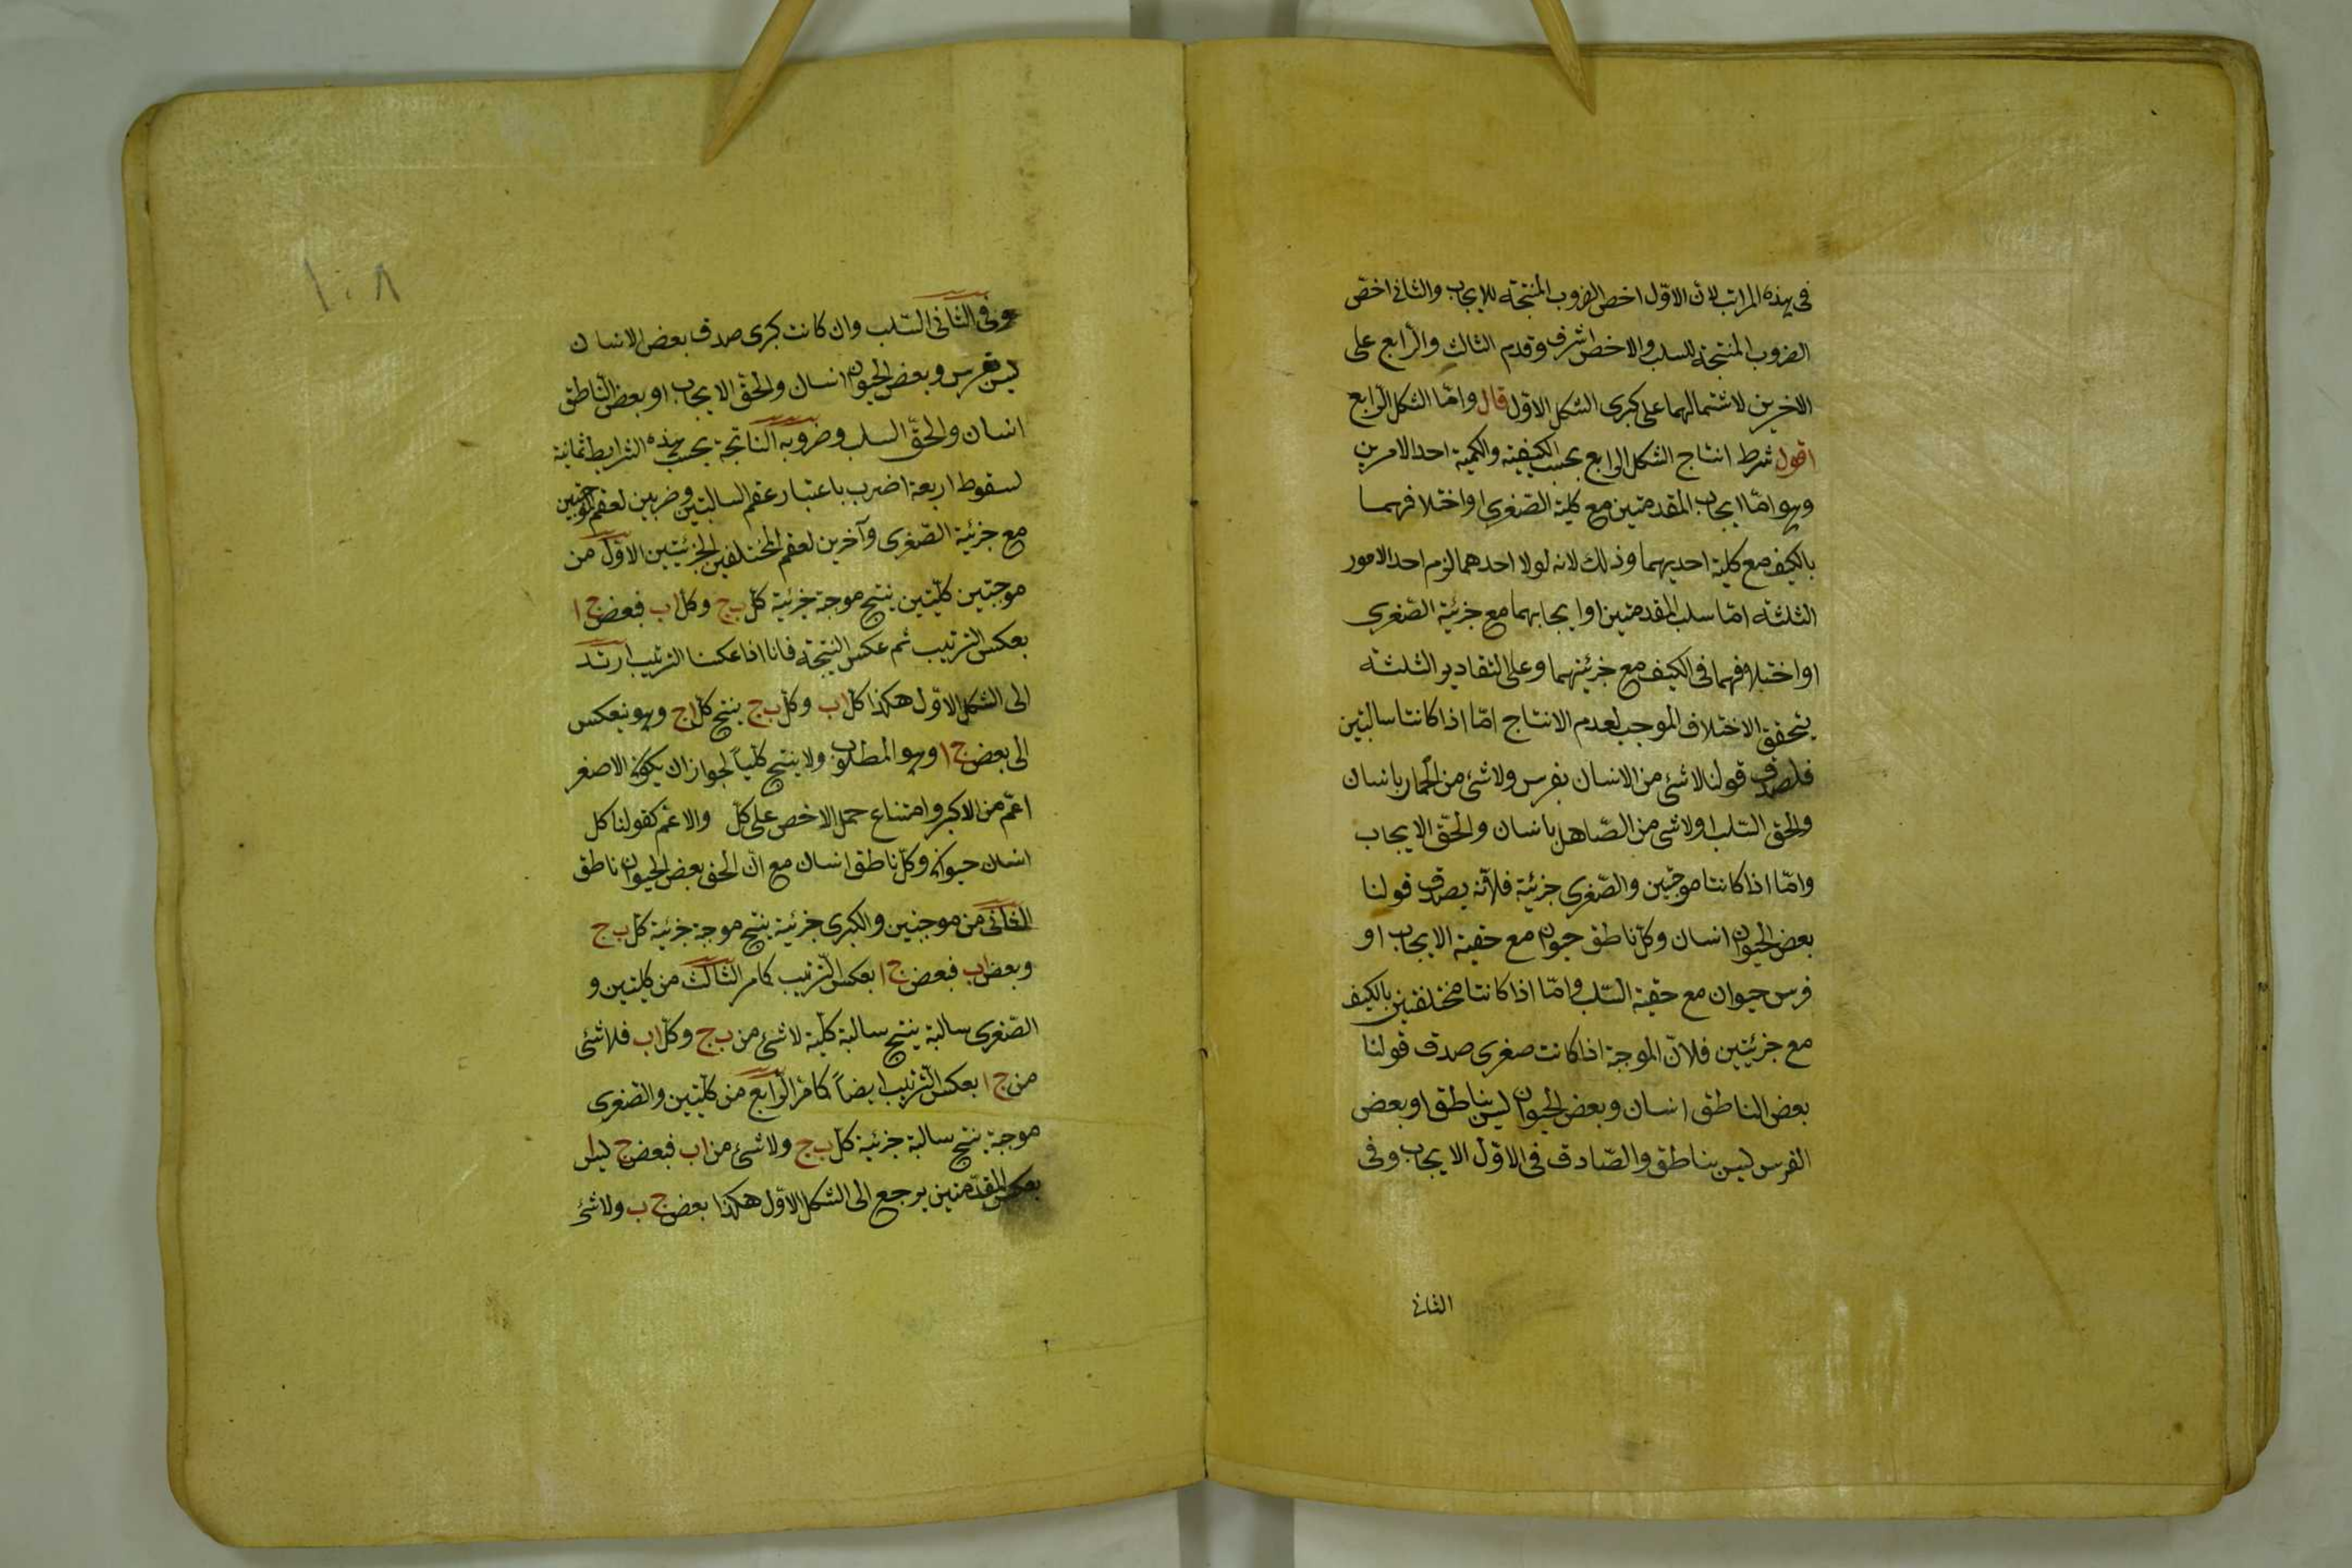 في هذه المراتب لان الاوّل اخص الضروب المنتجة للايجاب والثاني اخصّ
الضروب المنتجة للسلب والاخص اشرف وقدم الثالث والرابع على
الاخرين لاشتمالهما على كبرى الشكل الاوّل قال وامّا الشكل الرّابع
اقول شرط انتاج الشكل الرابع بحسب الكيفية والكمية احد الامرين
وهو امّا ايجاب المقدمتين مع كلية الصّغرى او اختلافهما
بالكيف مع كلية احديهما وذلك لانه لولا احدهما لزم احد الامور
الثلثة امّا سلب المقدمتين او ايجابهما مع جزئية الصّغرى
او اختلافهما في الكيف مع جزئيتهما وعلى التقادير الثلثة
يتحقق الاختلاف الموجب لعدم الانتاج امّا اذا كانتا سالبتين
فلصدق قولنا لا شئ من الانسان بفرس ولا شئ من الحمار بانسان
والحق السّلب او لا شئ من الصّاهل بانسان والحقّ الايجاب
وامّا اذا كانتا موجبتين والصّغرى جزئية فلانّه يصدق قولنا
بعض الحيوان انسان وكلّ ناطق حيوان مع حقية الايجاب او
فرس حيوان مع حقية السّلب وامّا اذا كانتا مختلفتين بالكيف
مع جزئيتين فلانّ الموجبة اذا كانت صغرى صدق قولنا
بعض الناطق انسان وبعض الحيوان ليس بناطق او بعض
الفرس ليس بناطق والصّادق في الاوّل الايجاب وفي
الثاني
١٠٨
وفي الثاني السّلب وان كانت كبرى صدق بعض الانسان
ليس بفرس وبعض الحيوان انسان والحقّ الايجاب او بعض النّاطق
انسان والحقّ السلب وضروبه الناتجة بحسب هذه الشرايط ثمانية
لسقوط اربعة اضرب باعتبار عقم السالبتين وضربين لعقم الموجبتين
مع جزئية الصّغرى وآخرين لعقم المختلفين الجزئيتين الاوّل من
موجبتين كلّيتين ينتج موجبة جزئية كلّ ب ج وكلّ ا ب فبعض ج ا
بعكس الترتيب ثم عكس النتيجة فانا اذا عكسنا الترتيب ارتد
الى الشكل الاوّل هكذا كلّ ا ب وكلّ ب ج ينتج كلّ ا ج وهو ينعكس
الى بعض ج ا وهو المطلوب ولا ينتج كلّياً لجواز ان يكون الاصغر
اعمّ من الاكبر وامتناع حمل الاخص على كلّ والاعمّ كقولنا كل
انسان حيوان وكلّ ناطق انسان مع انّ الحق بعض الحيوان ناطق
الثاني من موجبتين والكبرى جزئية ينتج موجبة جزئية كلّ ب ج
وبعض ا ب فبعض ج ا بعكس الترتيب كما مر الثالث من كليتين و
الصّغرى سالبة ينتج سالبة كلّية لا شئ من ب ج وكلّ ا ب فلا شئ
من ج ا بعكس الترتيب ايضاً كما مرّ الرّابع من كلّيتين والصّغرى
موجبة ينتج سالبة جزئية كلّ ب ج ولا شئ من ا ب فبعض ج ليس ا
بعكس المقدّمتين يرجع الى الشكل الاوّل هكذا بعض ج ب ولا شئ